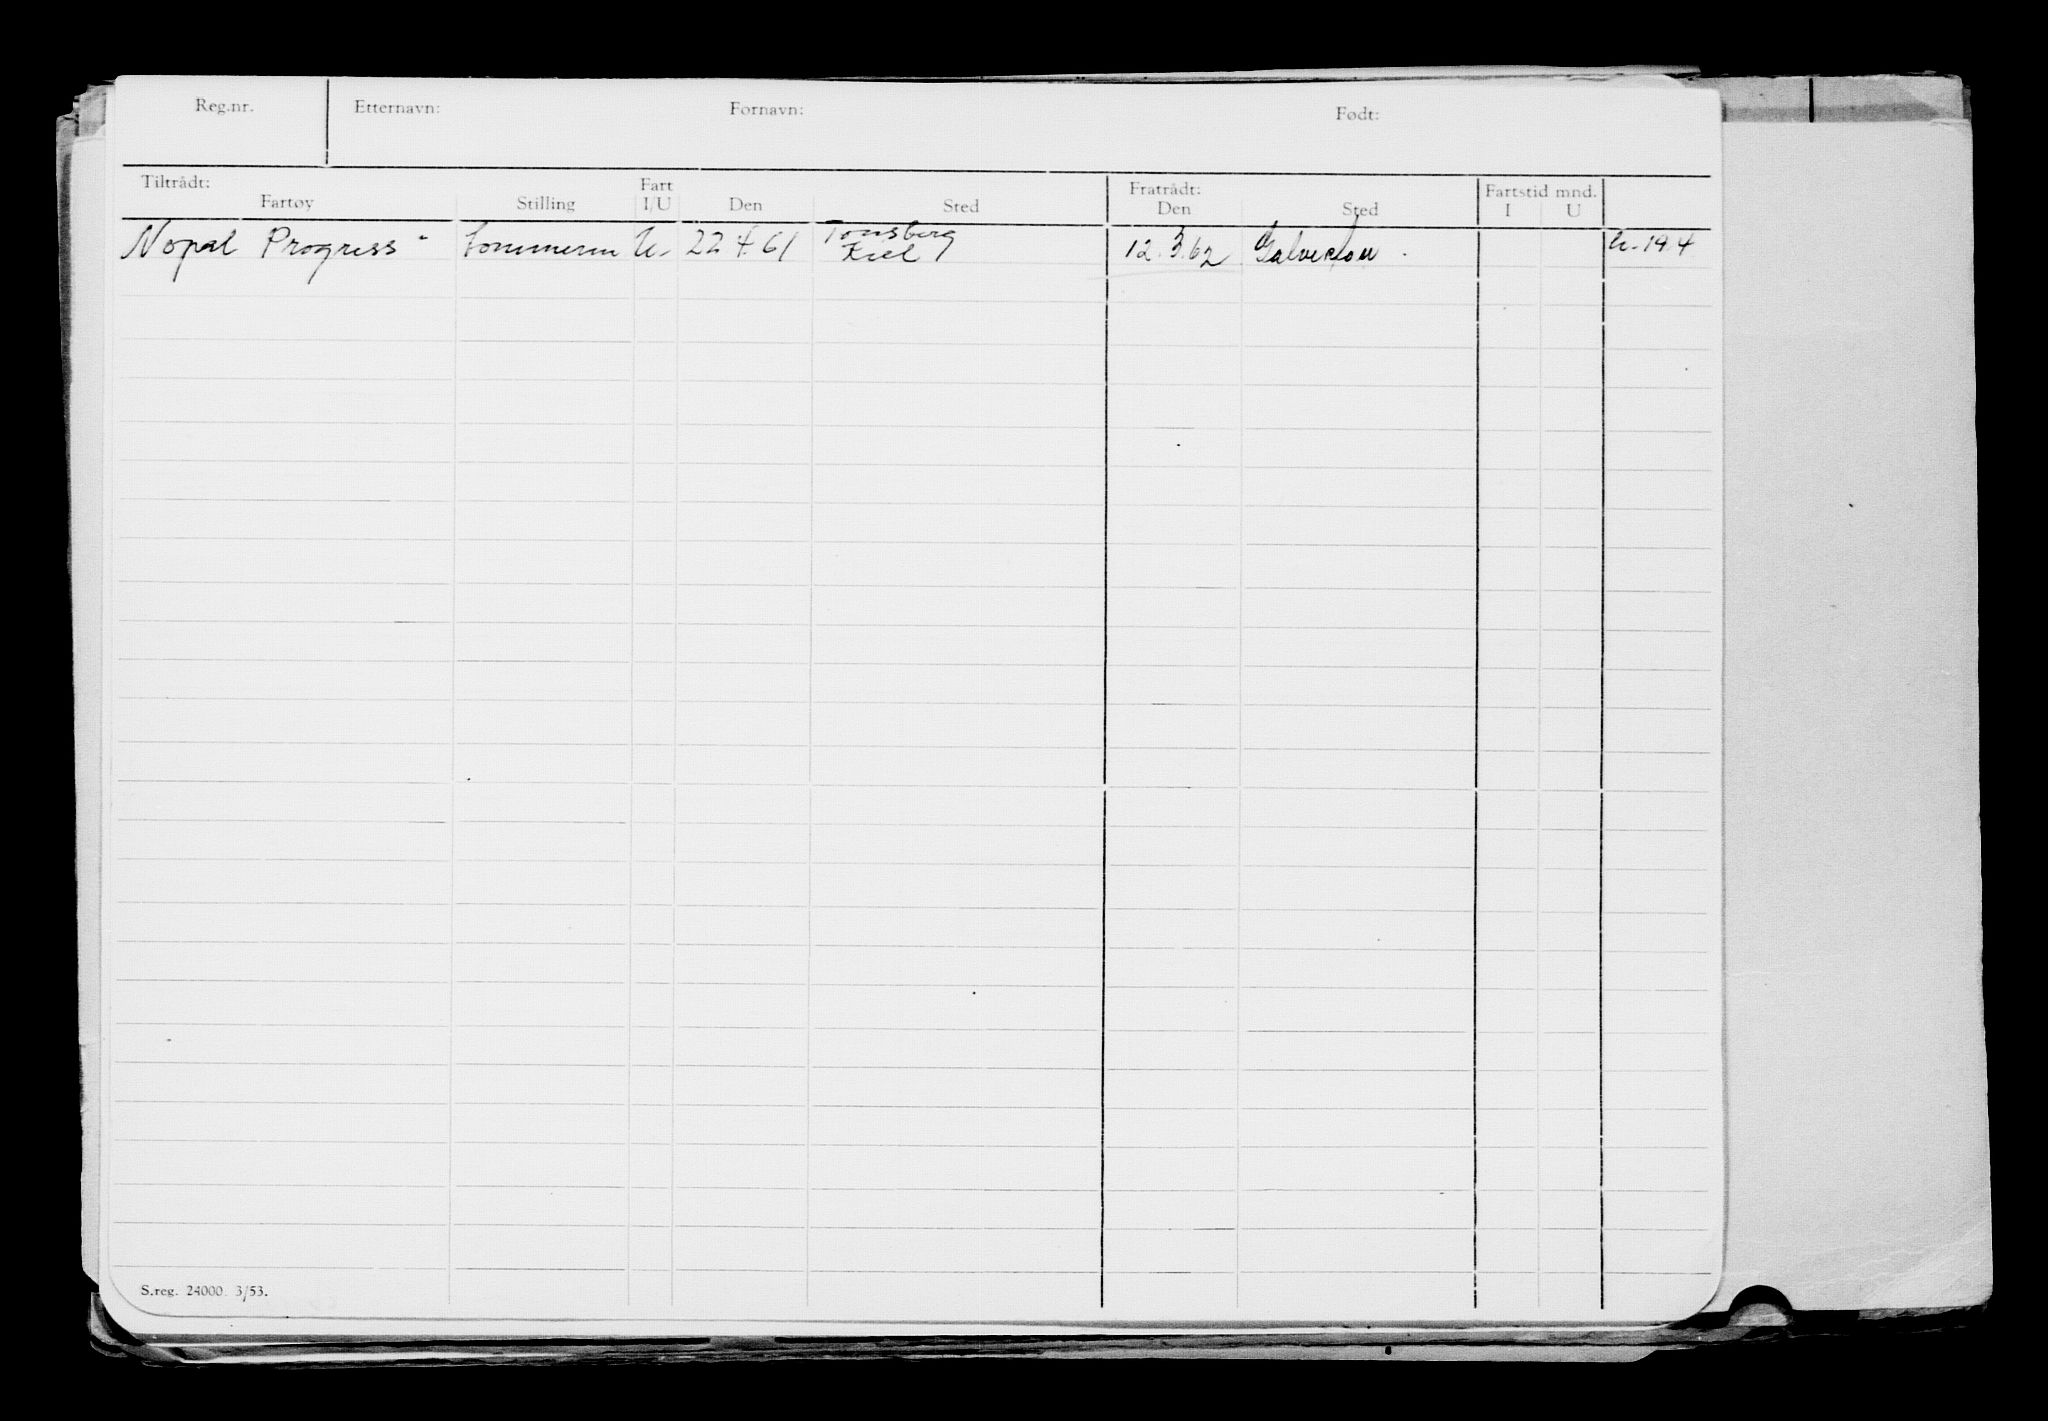 Reg.nr. Etternavn: Fornavn: Født:
Tiltrådt: Fartøy Stilling Fart I/U Den Sted Fratrådt: Den Sted Fartstid mnd. I U
Nopal Progress " U. 22 4 61 Tønsberg Kiel 12.3.62 Galveston
S.reg. 24000. 3/53.